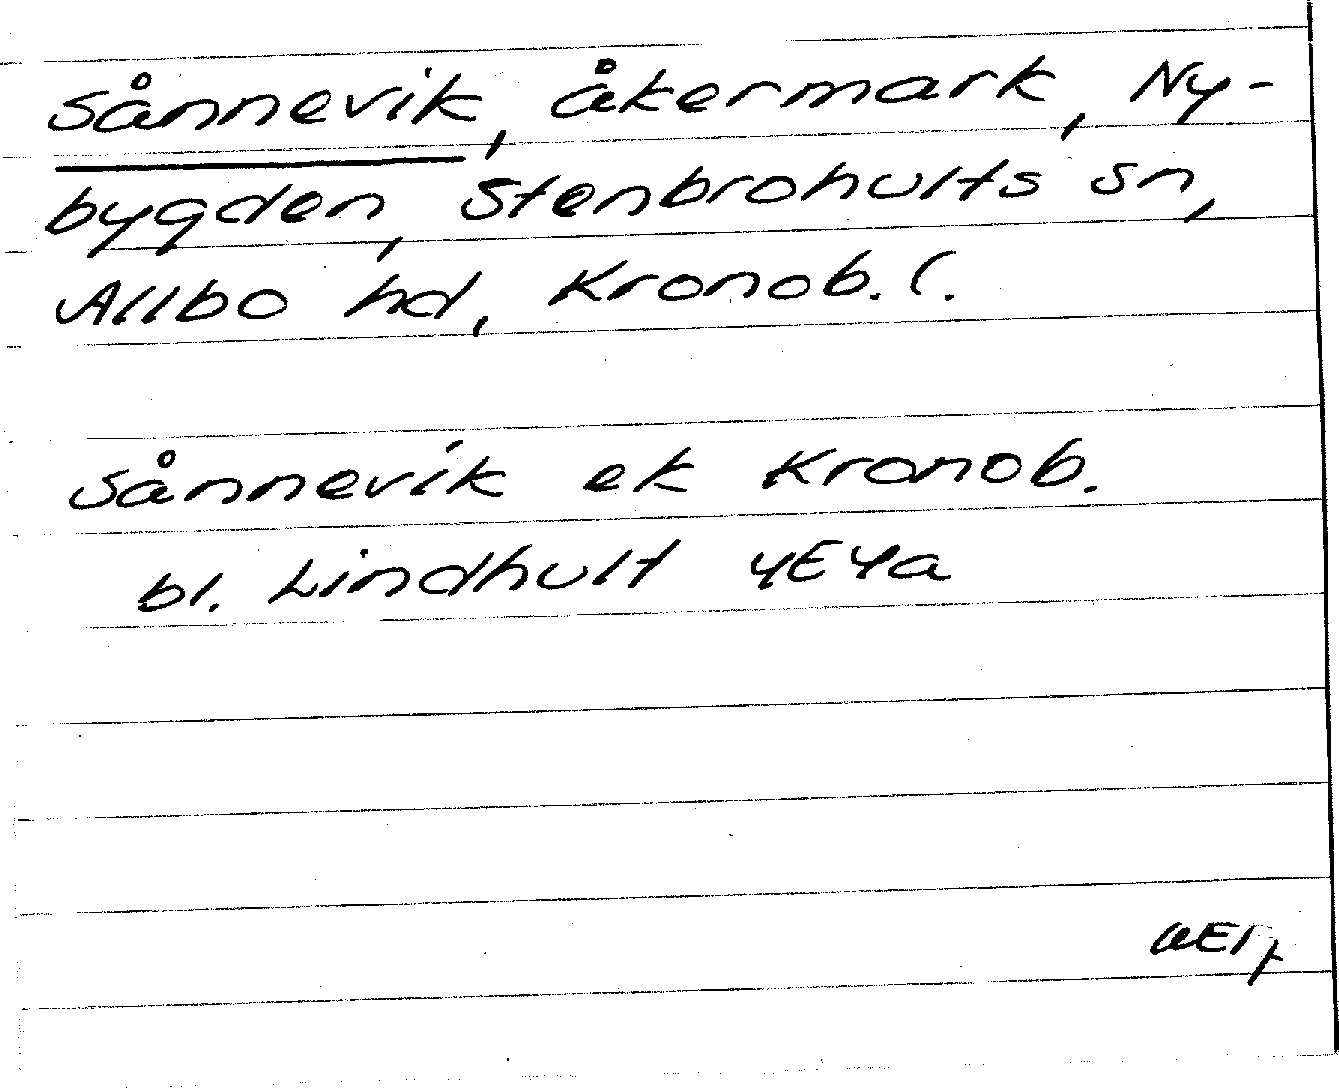 Sånnevik, åkermark, Ny-
bygden, Stenbrohults sn,
Allbo hd, Kronob. l.
Sånnevik ek Kronob.
bl. Lindhult 4E4a